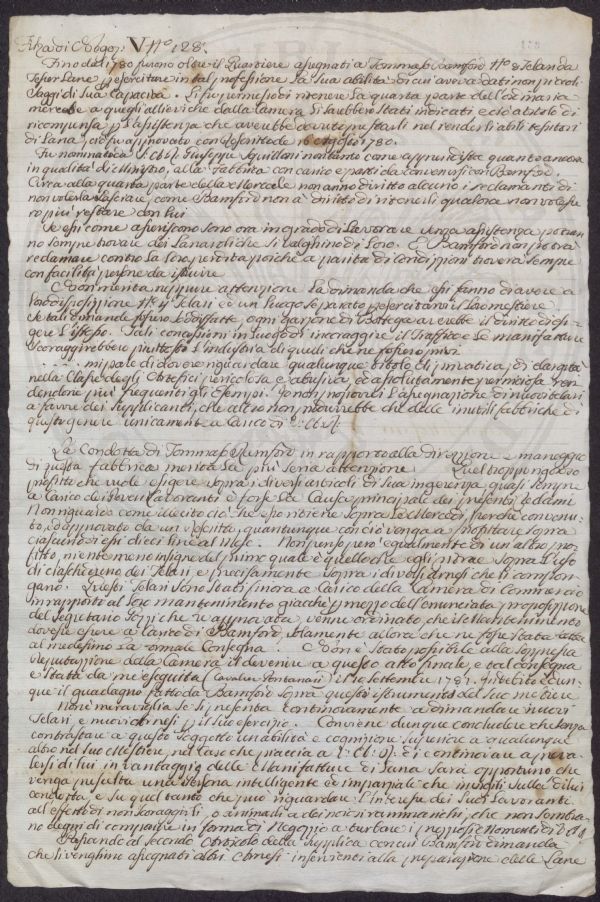 Filza di Negozj V N.º 128.
Fino dal 1780 furono oltre il Quartiere assegnati a Tommaso Bamford N.º 8 Telari da
Tesser Lane, per esercitare in tal professione la sua abilità di cui aveva dati non piccoli
saggi di sua Capacità. Si fu permesso di ritenere la quarta parte dell'ordinaria
mercede a quegli allievi che dalla Camera li sarebbero stati indicati e ciò a titolo di
ricompensa per l'assistenza che avrebbe dovuto prestarli nel renderli abili tessitori
di Lana, ciò fu approvato con Rescritto de 16 Agosto 1780.
Fu nominato a Giuseppe Squilloni non tanto come apprendista quanto ancora
in qualità di Ministro, alla Fabbrica con carico e patti da convenirsi con Bamford.
Circa alla quarta parte della Mercede non anno diritto alcuno i reclamanti di
non volerla lasciare, come Bamford non à diritto di ritenerli qualora non volesse
ro più restare con lui
Se essi come asseriscono sono ora in grado di lavorare senza assistenza potran
no sempre trovare dei Lanaroli che si valghino di loro. E Bamford non potrà
reclamare contro la loro perdita poiche a parità di condizioni troverà sempre
con facilità persone da istruire
Non merita neppure attenzione la dimanda che essi fanno di avere a
loro disposizione N.º 4 Telari ed un luogo separato per esercitarvi il loro mestiere
Se tali dimande fossero sodisfatte ogni garzone di Bottega avrebbe il diritto di esi-
gere l'istesso. Tali concessioni in luogo di incoraggire il Traffico e le manifatture
scoraggirebbero piuttosto l'industria di quelli che ne fossero privi.
mi pare di dover riguardare qualunque titolo di privativa, di dargità
nella Classe degli Artefici pericolosa e abusiva, ed assolutamente perniciosa ren-
dendone più frequenti gli esempi. l'assegnazione di nuovi telari
a favore dei supplicanti, che altro non produrrebbe che delle inutili fabbriche di
questo genere unicamente a carico di
La Condotta di Tommaso Bamford in rapporto alla direzione, e maneggio
di questa fabbrica merita la più seria attenzione. Quel troppo ingordo
profitto che vuole esigere sopra i diversi articoli di sua ingerenza quasi sempre
a carico dei Poveri Lavoranti è forse la Causa principale dei presenti reclami
Non riguardo come illecito ciò che esso ritiene sopra le Mercedi, perche convenu-
to, ed approvato da un Rescritto, quantunque con ciò venga a profittare sopra
ciascuno di essi dieci lire al Mese. Non penso però egualmente di un altro pro-
fitto, niente meno insigne del primo quale è quello che egli ritrae sopra l'uso
di ciascheduno dei Telari, e precisamente sopra i diversi arnesi che li compon-
gano. Questi Telari sono stati finora a carico della Camera di Commercio
in rapporto al loro mantenimento giacche per mezzo dell'enunciata proposizione
del Segretario che fu approvata, venne ordinato, che il Mantenimento
dovesse essere a conto di Bamford, solamente allora che ne fosse stata fatta
al medesimo la formale Consegna. Non è stato possibile alla soppressa
Deputazione della Camera il devenire a questo atto finale, e tal consegna
è stata da me eseguita (Cavalier Pontenani) il 10 Settembre 1782. Indebito è dun-
que il guadagno fatto da Bamford sopra questi istrumenti del suo mestiere
Non è meraviglia se si presenta continovamente a dimandare nuovi
Telari e nuovi arnesi per il suo esercizio. Conviene dunque concludere che senza
contrastare a questo soggetto un'abilità e cognizione superiore a qualunque
altro nel suo Mestiere, nel caso che piaccia a di continovare a preva-
lersi di lui in vantaggio delle Manifatture di Lana sarà opportuno che
venga prescelta una Persona intelligente ed imparziale che invigili sulla di lui
condotta e su quel tanto che può riguardare l'interesse dei suoi Lavoranti
all'effetto di non scoraggirli, o animarli a dei nuovi rammarichi, che non sembra-
no degni di comparire in forma di Negozio a turbare i preziosi Momenti di
Passando al secondo Articolo della Supplica con cui Bamford dimanda
che li venghino assegnati altri Arnesi inservienti alla preparazione delle Lane